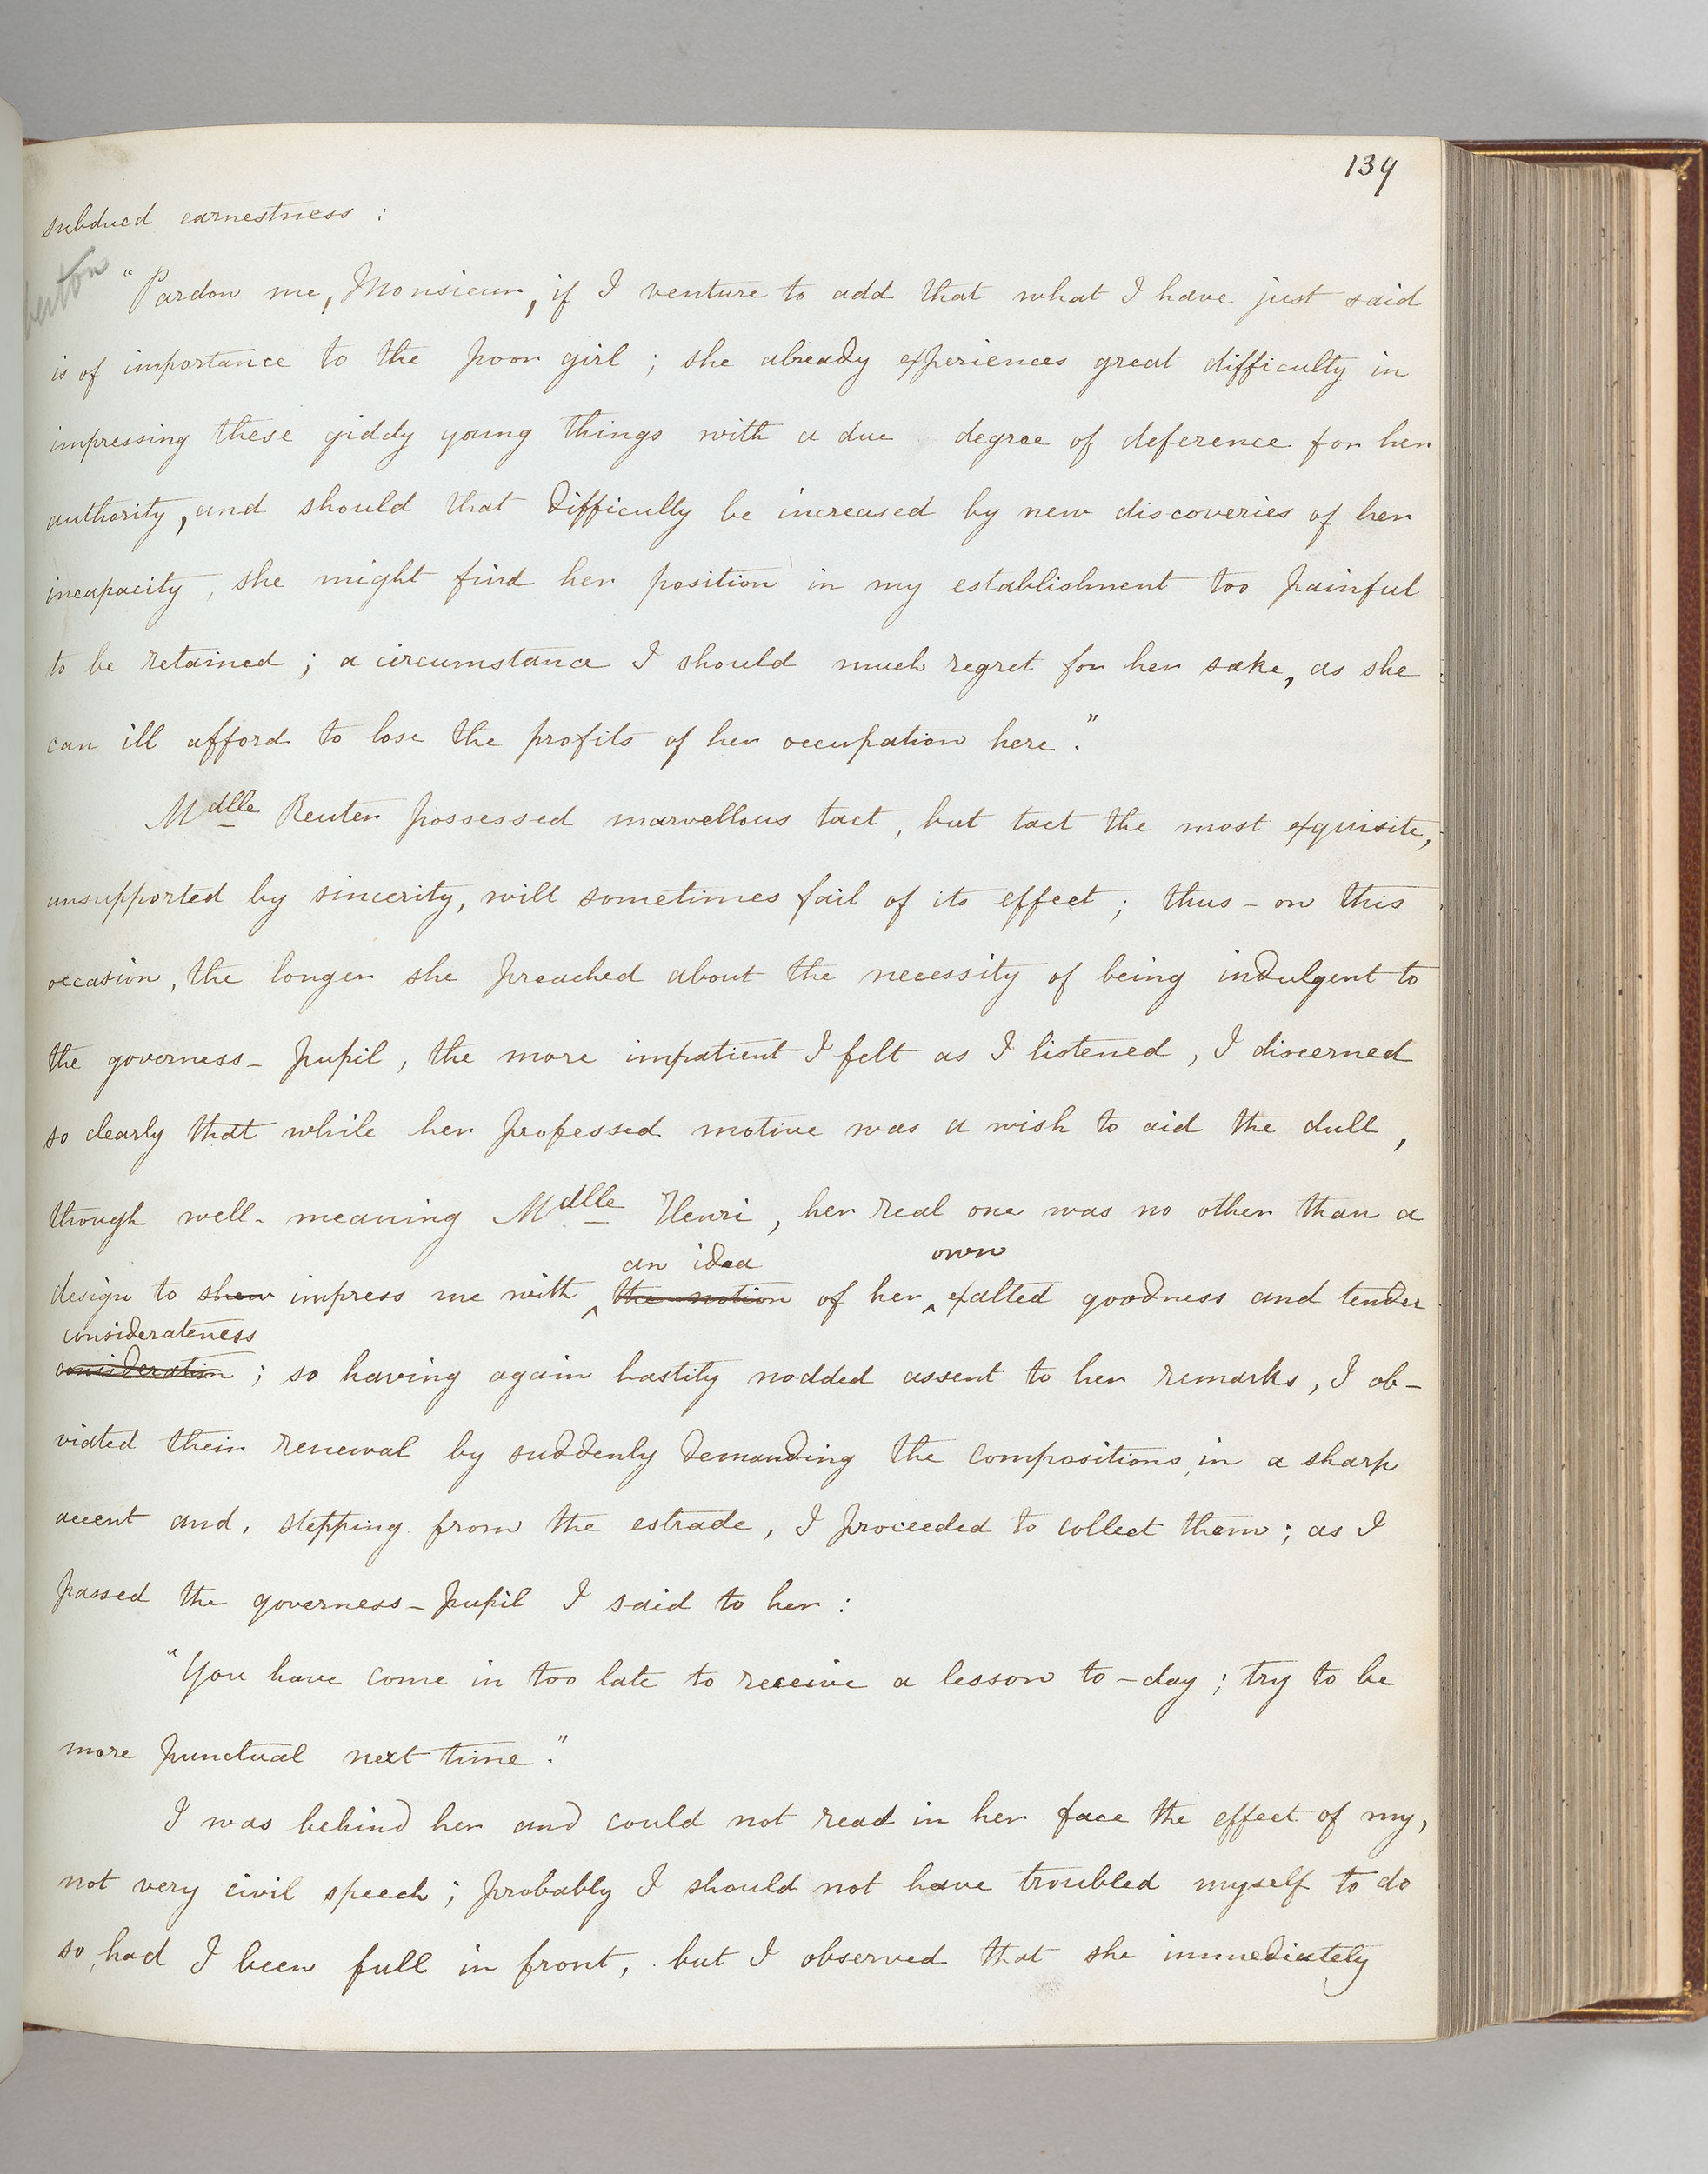 139
subdued earnestness :
berton
"Pardon me, Monsieur, if I venture to add that what I have just said
is of importance to the poor girl ; she already experiences great difficulty in
impressing these giddy young things with a due degree of deference for her
authority, and should that difficulty be increased by new discoveries of her
incapacity, she might find her position in my establishment too painful
to be retained ; a circumstance I should much regret for her sake, as she
can ill afford to lose the profits of her occupation here."
Mdlle Reuter possessed marvellous tact, but tact the most exquisite,
unsupported by sincerity, will sometimes fail of its effect ; thus - on this
occasion, the longer she preached about the necessity of being indulgent to
the governess-pupil, the more impatient I felt as I listened, I discerned
so clearly that while her professed motive was a wish to aid the dull,
though well-meaning Mdlle Henri, her real one was no other than a
an idea own
design to shew impress me with ‸ the notion of her ‸ exalted goodness and tender
considerateness
consideration ; so having again hastily nodded assent to her remarks, I ob-
viated their renewal by suddenly demanding the compositions, in a sharp
accent and, stepping from the estrade, I proceeded to collect them ; as I
passed the governess-pupil I said to her :
"You have come in too late to receive a lesson to-day ; try to be
more punctual next time."
I was behind her and could not read in her face the effect of my,
not very civil speech ; probably I should not have troubled myself to do
so, had I been full in front, but I observed that she immediately